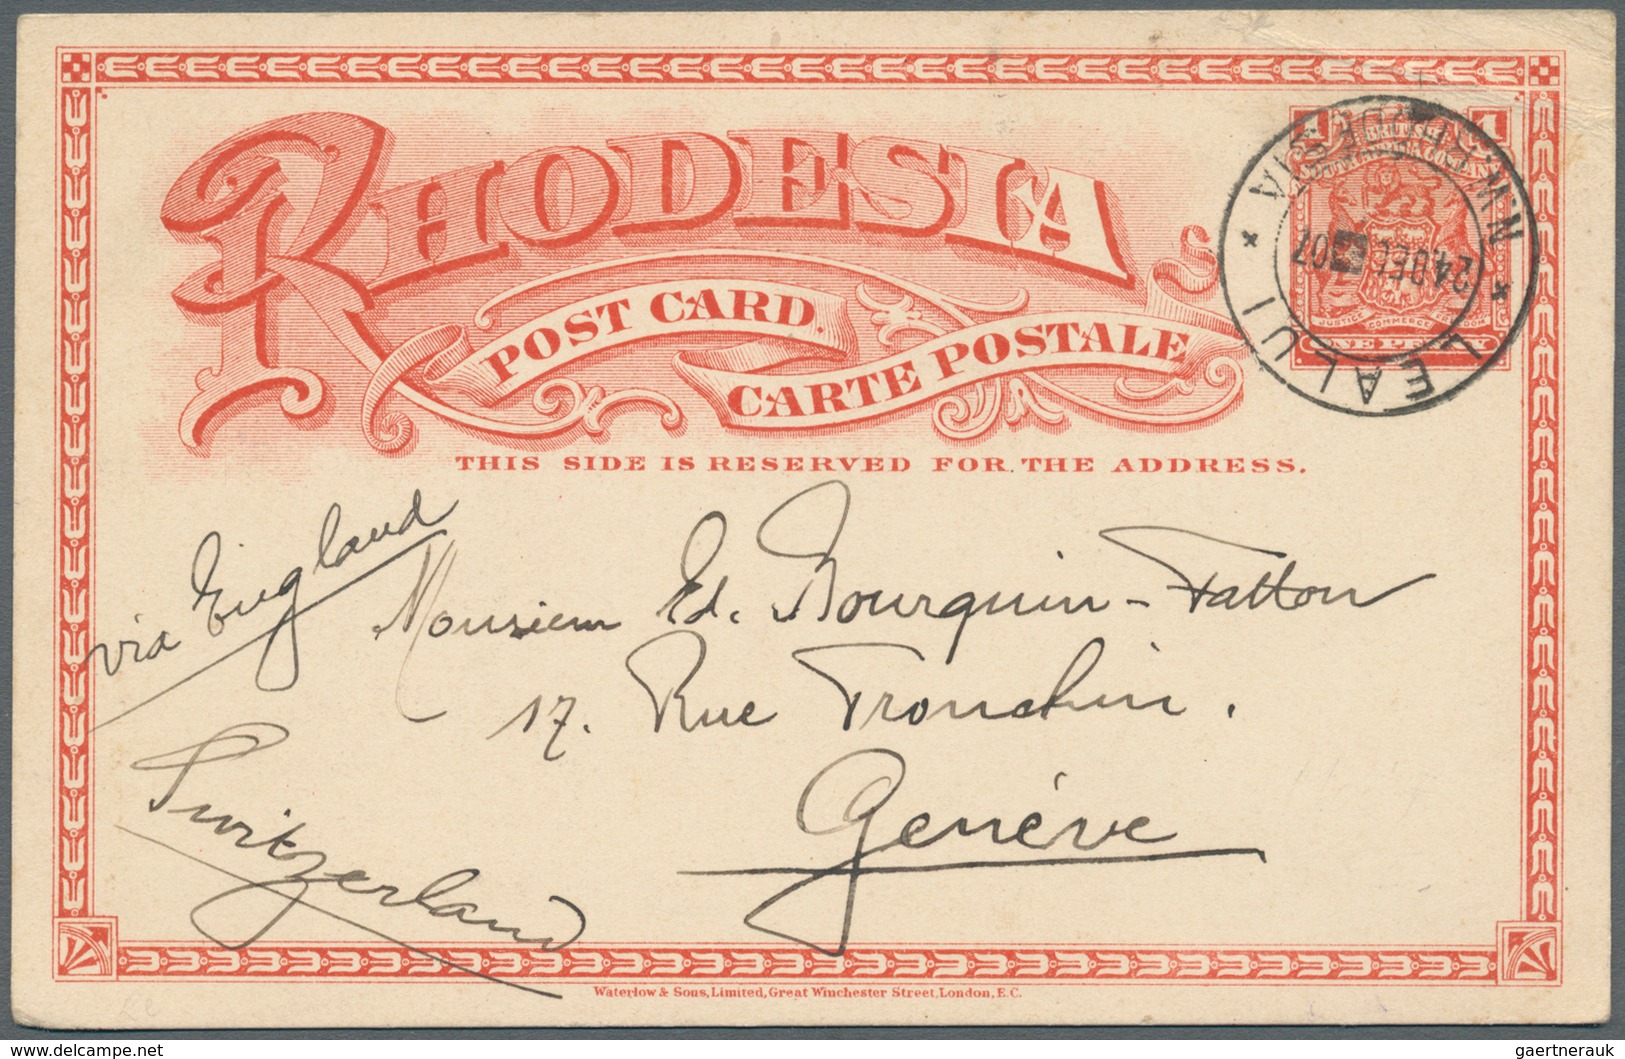 RHODESIA
POST CARD.
CARTE POSTALE
THIS SIDE IS RESERVED FOR THE ADDRESS.
1 1
BRITISH
JUSTICE COMMERCE FREEDOM
ONE PENNY
N.W. RHODESIA
24 DEC 07
* LEALUI *
via England
Monsieur Ed. Bourquin-Fatton
17. Rue Tronchin.
Genève
Switzerland
Waterlow & Sons, Limited, Great Winchester Street, London, E.C.
delcampe.net
gaertnerauk